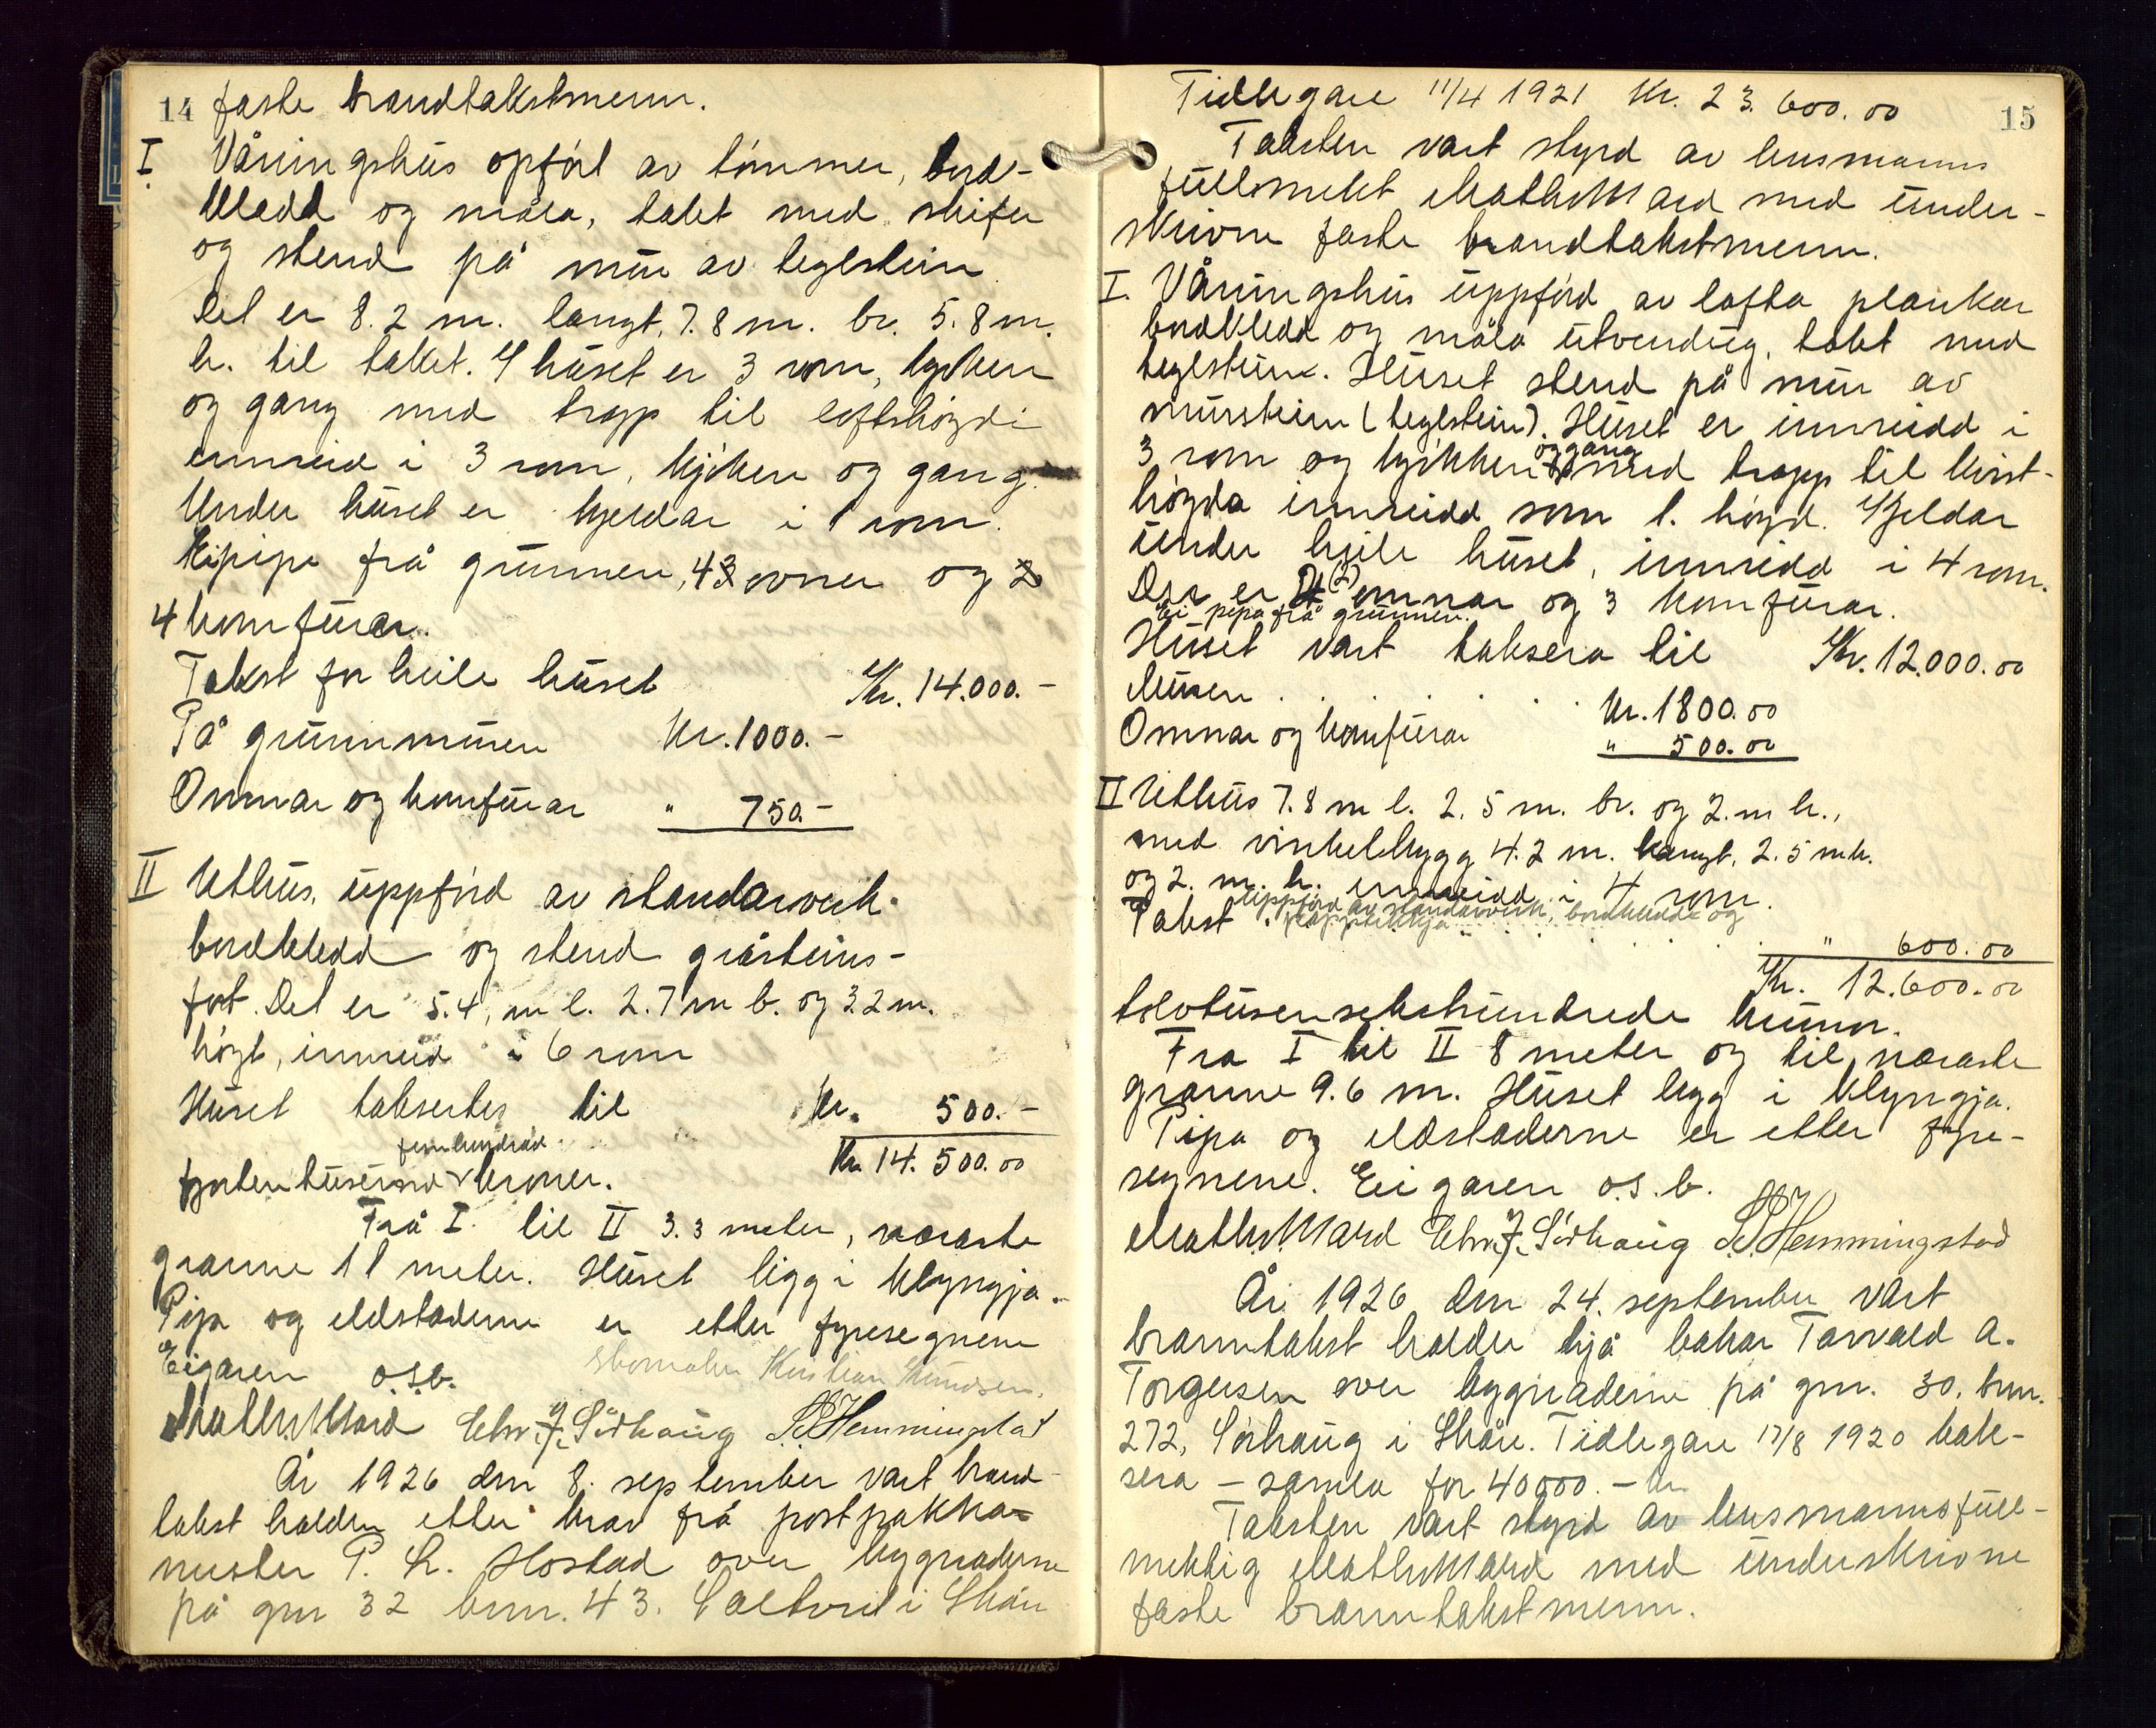 14 faste brandtakstmenn.
I Våningshus opført av tømmer, bord-
kledd og måla, tekt med skifer
og stend på mur av teglstein
Det er 8.2 m. langt, 7.8 m. br. 5.8 m.
h. til taket. I huset er 3 rom, kjøken
og gang med trapp til loftshøgdi
innreid i 3 rom, kjøken og gang.
Under huset er kjeldar i 1 rom.
Ei pipe frå grunnen, 4 ovner og
4 komfurar.
Takst for heile huset Kr. 14.000.-
På grunnmuren Kr. 1000.-
Omnar og komfurar " 750.-
II Uthus, uppførd av standarverk.
bordkledd og stend gråsteins-
fot. Det er 5.4, m l. 2.7 m b. og 3.2 m.
høgt, innreid i 6 rom
Huset taksertes til Kr. 500.-
femhundrad
fjorten tusend kroner. Kr. 14.500.00
Frå I til II 3.3 meter, næraste
granne 11 meter. Huset ligg i klyngja.
Pipa og eldstaderne er etter fyresegnene
Eigaren o.s.b. Skomaker Kristian Knudsen.
Math. Mard Chr. J. Sørhaug S. J. Hemmingstad
År 1926 den 8. september vart brand-
takst halden etter krav frå postpakkha=
mester P. L. Hostad over bygnaderne
på gnr 32 bnr. 43. Saltveit i Skåre
Tidlegare 11/4 1921 Kr. 23.600.00 15
Taksten vart styrd av lensmanns
fullmekt Math. Mard med under-
skrivne faste brandtakstmenn.
I. Våningshus uppførd av lafta plankar
bordkledd og måla utvendig, tekt med
teglstein. Huset stend på mur av
murstein (teglstein). Huset er innreidd i
og gang
3 rom og kjøkken med trapp til kvist-
høgda innreidd som 1. høgd. Kjeldar
under heile huset, innreidd i 4 rom.
Der er (2) omnar og 3 komfurar.
Ei pipa frå grunnen.
Huset vart taksera til Kr. 12.000.00
Muren . . . . . Kr. 1800.00
Omnar og komfurar " 500.00
II Uthus 7.8 m l. 2.5 m. br. og 2. m h.,
med vinkelbygg 4.2 m. langt, 2.5 m br.
og 2. m. h. innreidd i 4 rom.
uppførd av standarverk, bordkledd og
Takst . papptekkja . . . . " 600.00
Kr. 12.600.00
tolvtusensekshundrede kronor.
Fra I til II 8 meter og til næraste
granne 9.6 m. Huset ligg i klyngja.
Pipa og eldstaderne er etter fyre-
segnene. Eigaren o.s.b.
Math. Mard Chr. J. Sørhaug S. J. Hemmingstad
År 1926 den 24. september vart
branntakst halden hjå bakar Torvald A.
Torgersen over bygnaderne på gnr. 30. bnr.
272, Sørhaug i Skåre. Tidlegare 17/8 1920 tak-
sera - samla for 40000.- kr.
Taksten vart styrd av lensmannsfull-
mektig Math. Mard med underskrivne
faste branntakstmenn.